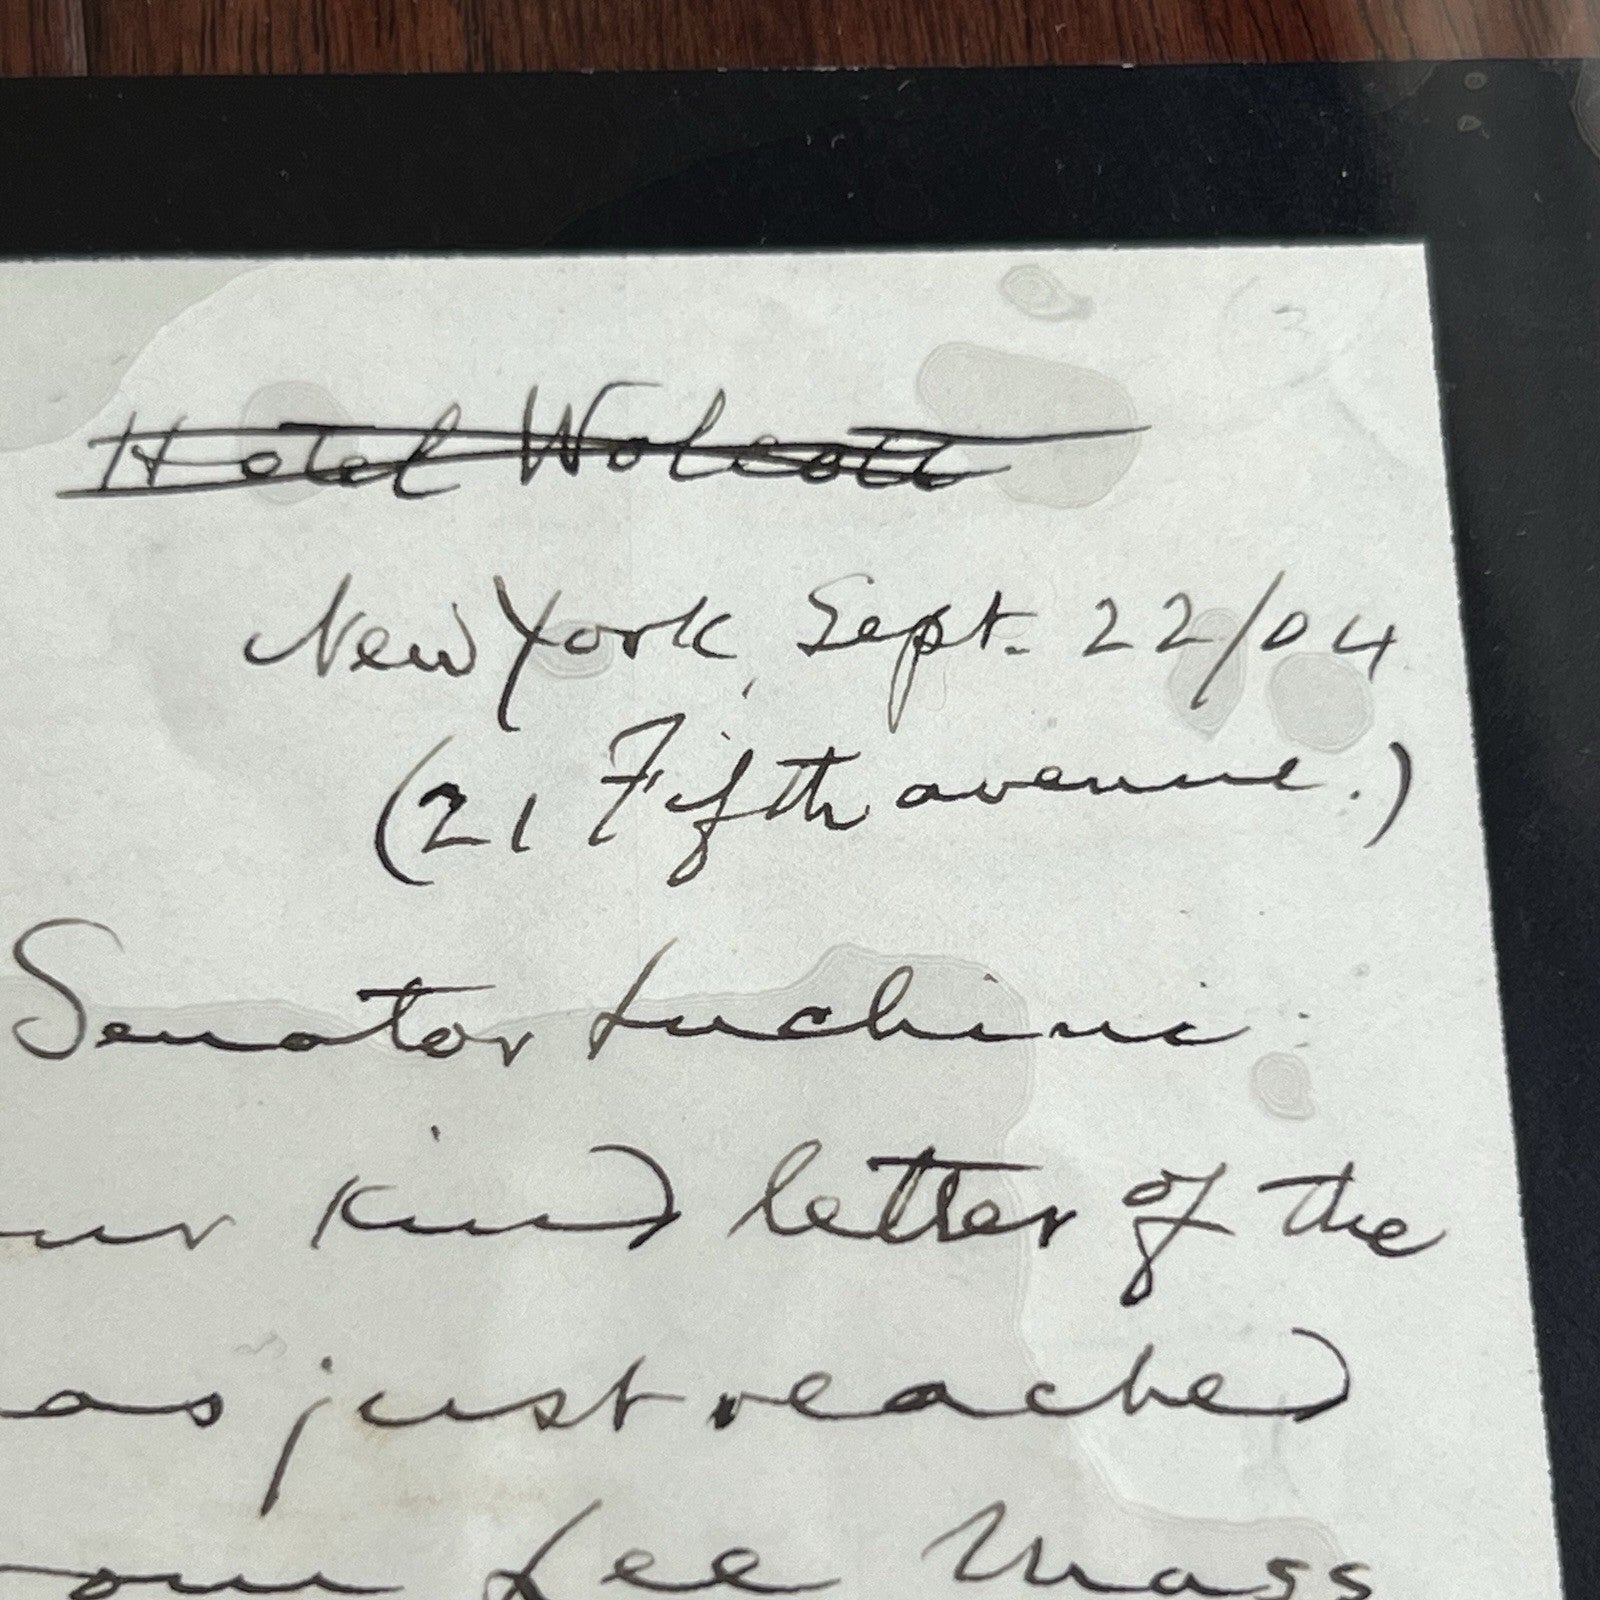 Hotel Wolcott
New York, Sept. 22/04
(21 Fifth avenue.)
Senator Luchini:
ur kind letter of the
as just reached
om Lee Mass